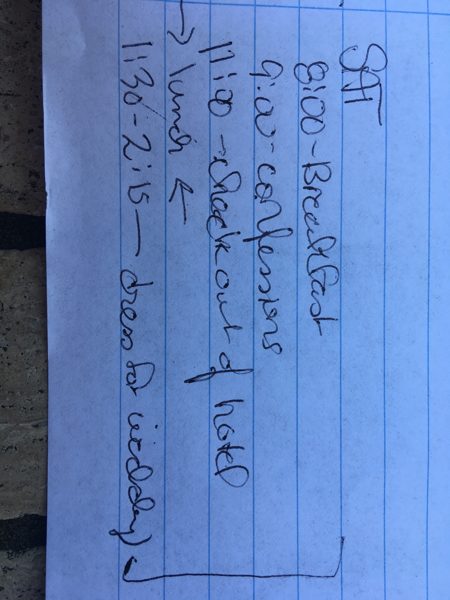 SAT
8:00 - Breakfast
9:00 - confessions
11:00 → check out of hotel
→ lunch ←
1:30 - 2:15 — dress for wedding